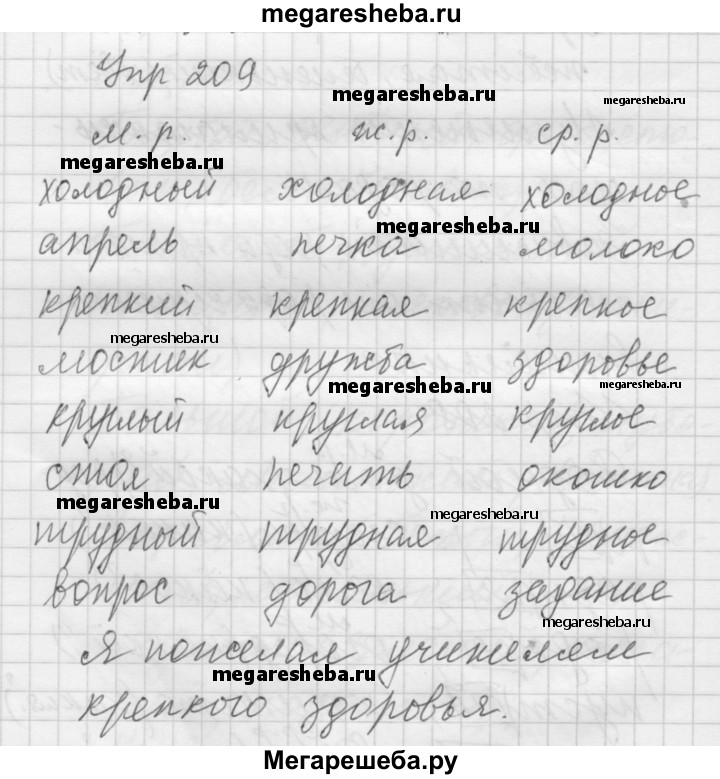 megaresheba.ru
Упр 209
megaresheba.ru megaresheba.ru
м. р. ж. р. ср. р.
megaresheba.ru
холодный холодная холодное
megaresheba.ru
апрель печка молоко
крепкий крепкая крепкое
megaresheba.ru
мостик дружба здоровье
megaresheba.ru megaresheba.ru
круглый круглая круглое
стол печать окошко
megaresheba.ru megaresheba.ru
трудный трудная трудное
вопрос дорога задание
megaresheba.ru
Я пожелал учителям
megaresheba.ru
крепкого здоровья.
Мегарешеба.ру